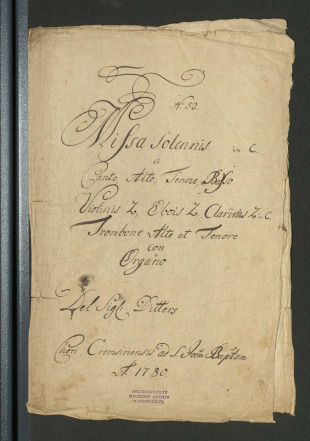 N: 52.
Missa Solennis in C.
a
Canto, Alto, Tenore, Basso
Violinis 2, Obois 2, Clarinis 2 in C
Trombone Alto et Tenore
con
Organo
Del Sig: Ditters
Chori Cremsiriensis ad S. Joan Baptam
A: 1780.